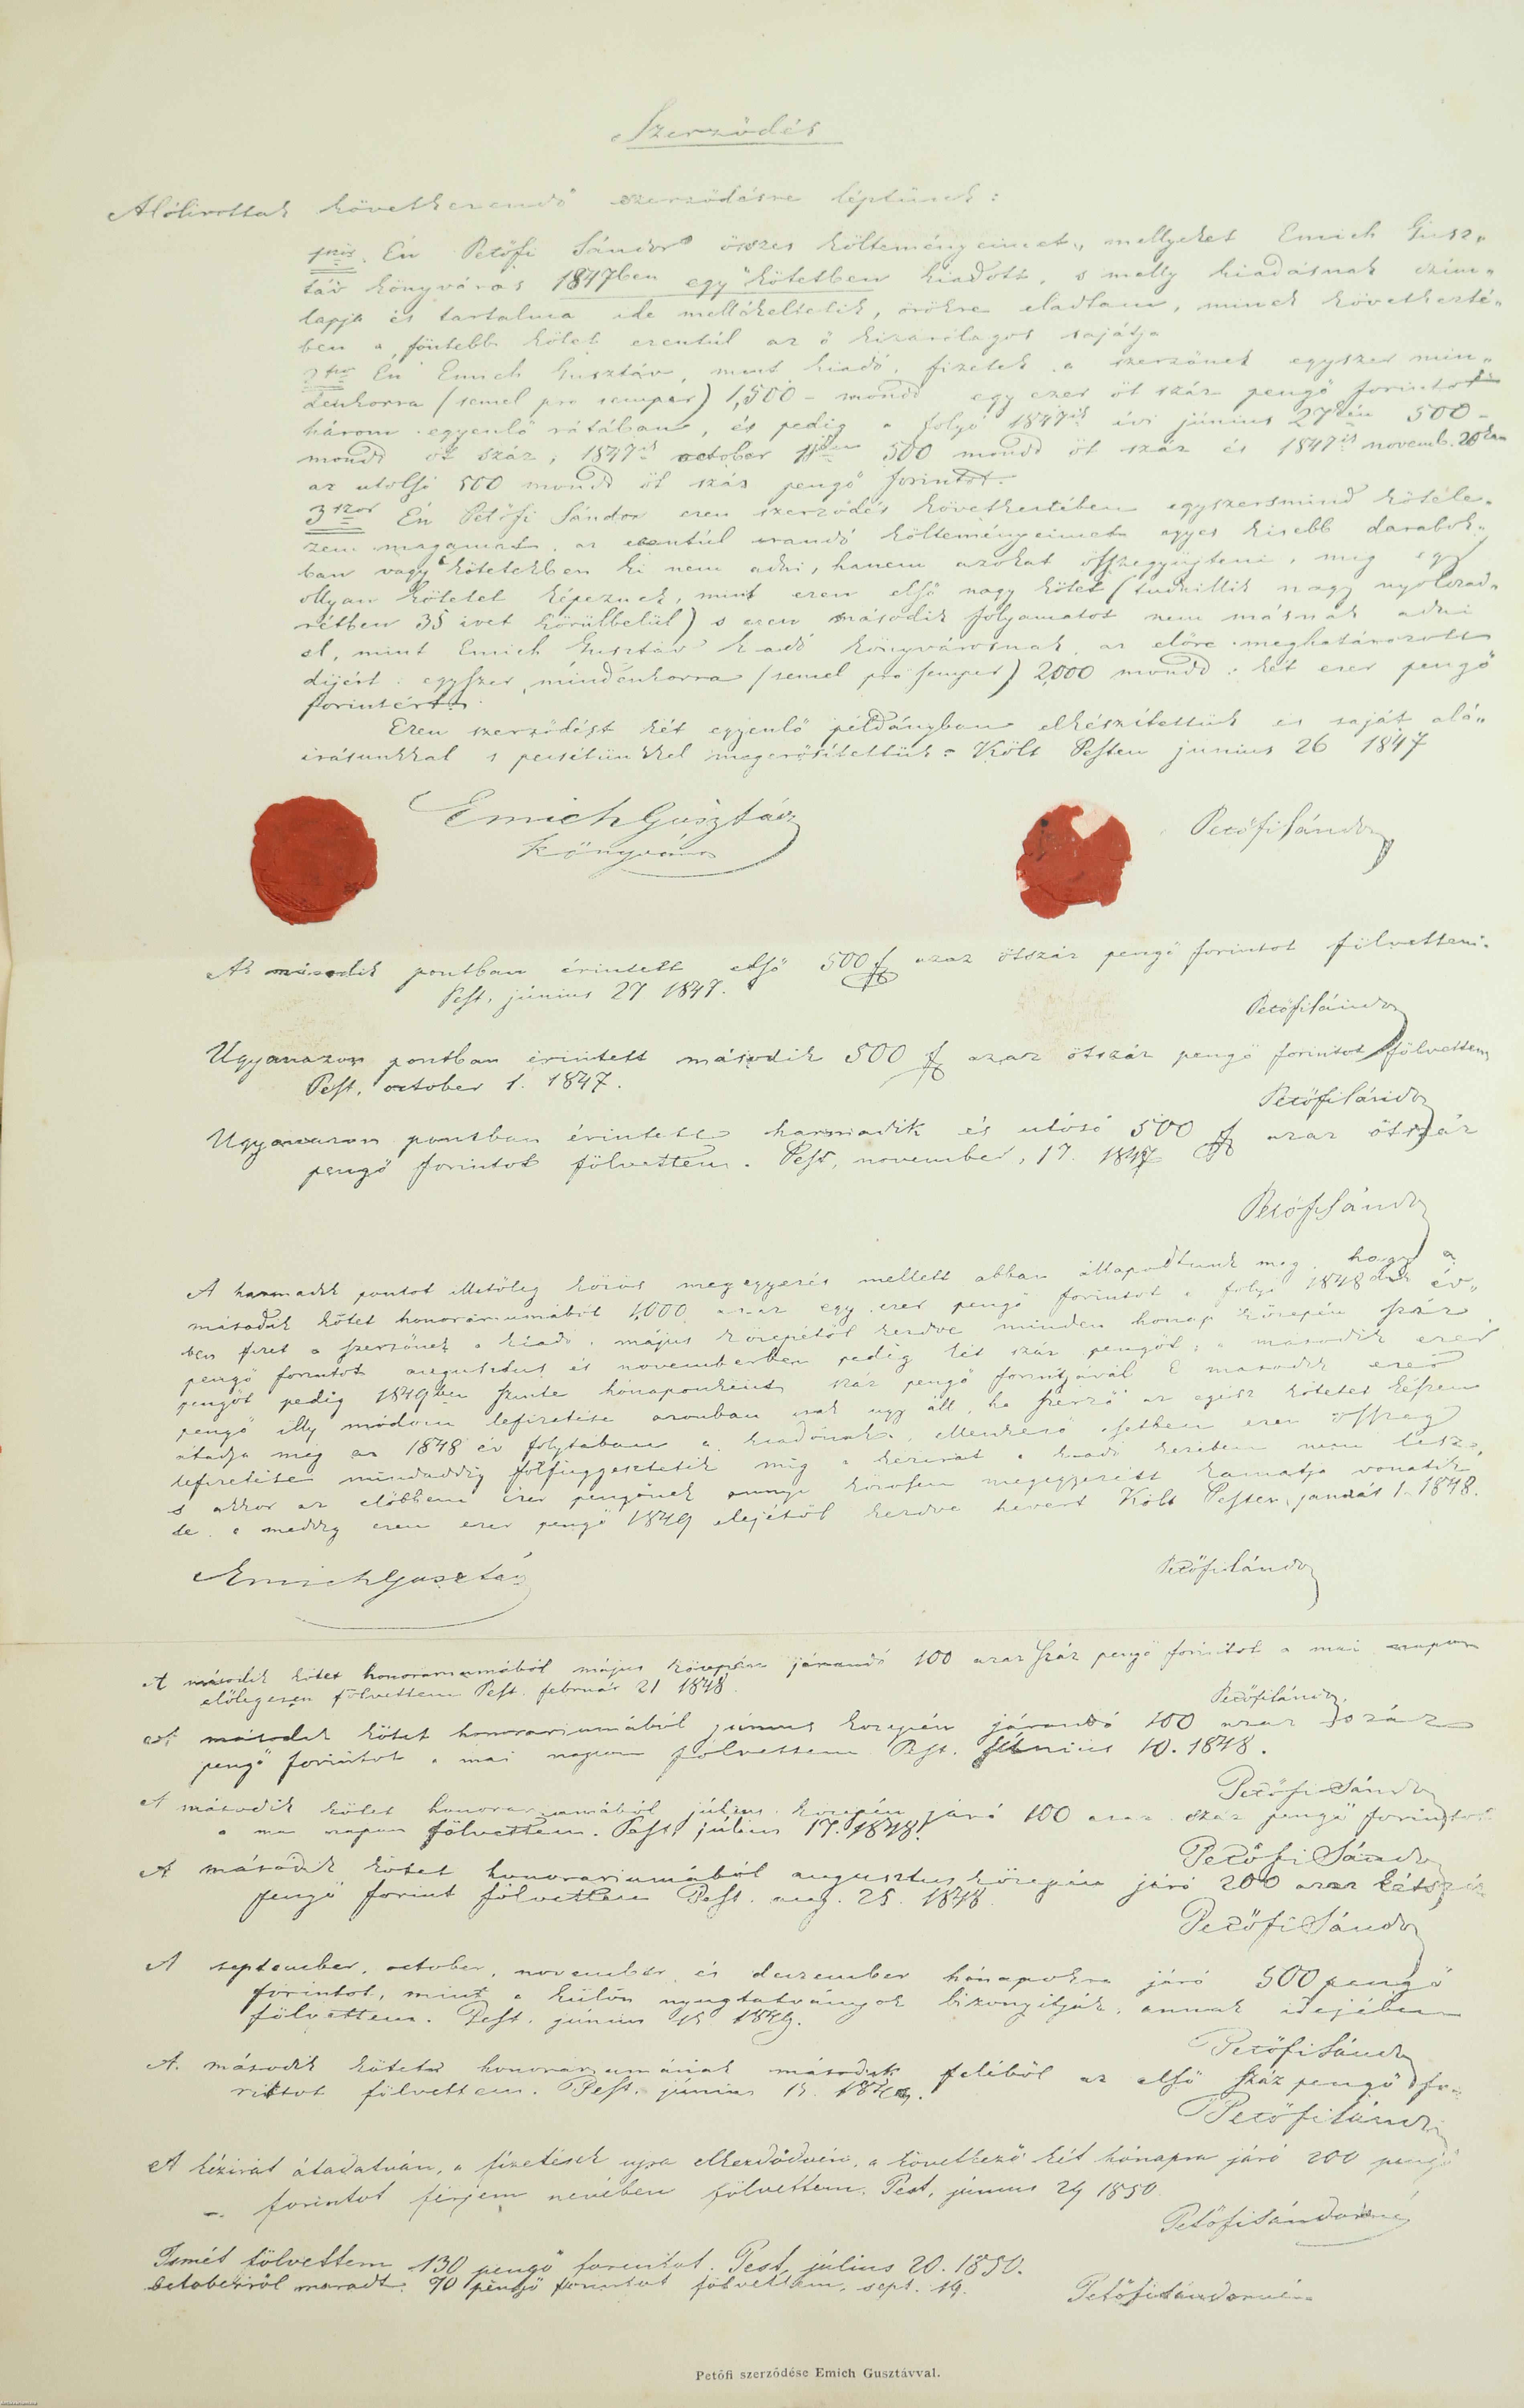 Szerződés
Alólirottak következendő szerződésre léptünk:
1ször Én Petőfi Sándor összes költeményeimet, mellyeket Emich Gusz„
táv könyváros 1847ben egy kötetben kiadott, s melly kiadásnak czím„
lapja és tartalma ide mellékeltetik, örökre eladtam, minek következté„
ben a föntebb kötet ezentúl az ő kizárólagos sajátja
2szor Én Emich Gusztáv, mint kiadó, fizetek a szerzőnek egyszer min„
denkorra (semel pro semper) 1,500 – mondd egy ezer öt száz pengő forintot
három egyenlő rátában, és pedig a folyó 1847ik évi június 27én 500 –
mondd öt száz, 1847ik october 1jén 500 mondd öt száz és 1847ik novemb. 20kán
az utolsó 500 mondd öt száz pengő forintot.
3szor Én Petőfi Sándor ezen szerződés következtében egyszersmind kötele„
zem magamat az ezentúl irandó költeményeimet egyes kisebb darabok„
ban vagy kötetekben ki nem adni, hanem azokat öszegyüjteni, míg egy
ollyan kötetet képeznek, mint ezen első nagy kötet (tudnillik nagy nyolczad„
rétben 35 ivet körülbelül) s ezen második folyamatot nem másnak adni
el, mint Emich Gusztáv kiadó könyvárosnak, az előre meghatározott
díjért egyszer mindenkorra (semel pro semper) 2,000 mondd: két ezer pengő
forintért.
Ezen szerződést két egyenlő példányban elkészítettük és saját alá„
irásunkkal s pecsétünkkel megerősítettük. Költ Pesten június 26 1847
Emich Gusztáv
könyváros
Petőfi Sándor
A második pontban érintett első 500 f azaz ötszáz pengő forintot fölvettem.
Pest, június 27 1847.
Petőfi Sándor
Ugyanazon pontban érintett második 500 f azaz ötszáz pengő forintot fölvettem
Pest, october 1. 1847.
Petőfi Sándor
Ugyanazon pontban érintett harmadik és utósó 500 f azaz ötszáz
pengő forintot fölvettem. Pest, november, 17. 1847
Petőfi Sándor
A harmadik pontot illetőleg közös megegyezés mellett abban állapodtunk meg, hogy a
második kötet honoráriumából 1,000 azaz egy ezer pengő forintot a folyó 1848dik év„
ben fizet a szerzőnek a kiadó, május közepétől kezdve minden hónap közepén száz
pengő forintot augustus és novemberben pedig két száz pengőt; a második ezer
pengőt pedig 1849ben szinte hónaponkint száz pengő forintjával. E második ezer
pengő illy módoni lefizetése azonban csak ugy áll, ha szerző az egész kötetet készen
átadja még az 1848 év folytában a kiadónak, ellenkező esetben ezen összeg
lefizetése mindaddig fölfüggesztetik míg a kézirat a kiadó kezében nem lesz,
s akkor az előbbeni ezer pengőnek annyi közösen megegyezett kamatja vonatik
le, a meddig ezen ezer pengő 1849 elejétől kezdve hevert Költ Pesten, január 1. 1848.
Emich Gusztáv
Petőfi Sándor
A második kötet honorariumából május közepén járandó 100 azaz száz pengő forintot a mai napon
előlegesen fölvettem Pest. február 21 1848.
Petőfi Sándor
A második kötet honorariumából június közepén járandó 100 azaz száz
pengő forintot a mai napon fölvettem Pest. június 10. 1848.
Petőfi Sándor
A második kötet honorariumából július közepén járó 100 azaz száz pengő forintot
a mai napon fölvettem. Pest, július 17. 1848.
Petőfi Sándor
A második kötet honorariumából augusztus közepén járó 200 azaz kétszáz
pengő forint fölvettem Pest. aug. 25. 1848
Petőfi Sándor
A september, october, november és december hónapokra járó 500 pengő
forintot, mint a külön nyugtatványok bizonyitják, annak idejében
fölvettem. Pest. június 15 1849.
Petőfi Sándor
A második kötet honorariumának második feléből az első száz pengő fo„
rintot fölvettem. Pest. június 15. 1849.
Petőfi Sándor
A kézirat átadatván, a fizetések ujra elkezdődvén, a következő két hónapra járó 200 pengő
forintot férjem nevében fölvettem. Pest, június 29 1850
Petőfi Sándorné
Ismét fölvettem 130 pengő forintot. Pest, július 20. 1850.
octoberről maradt 70 pengő forintot fölvettem, sept. 19.
Petőfi Sándorné
Petőfi szerződése Emich Gusztávval.